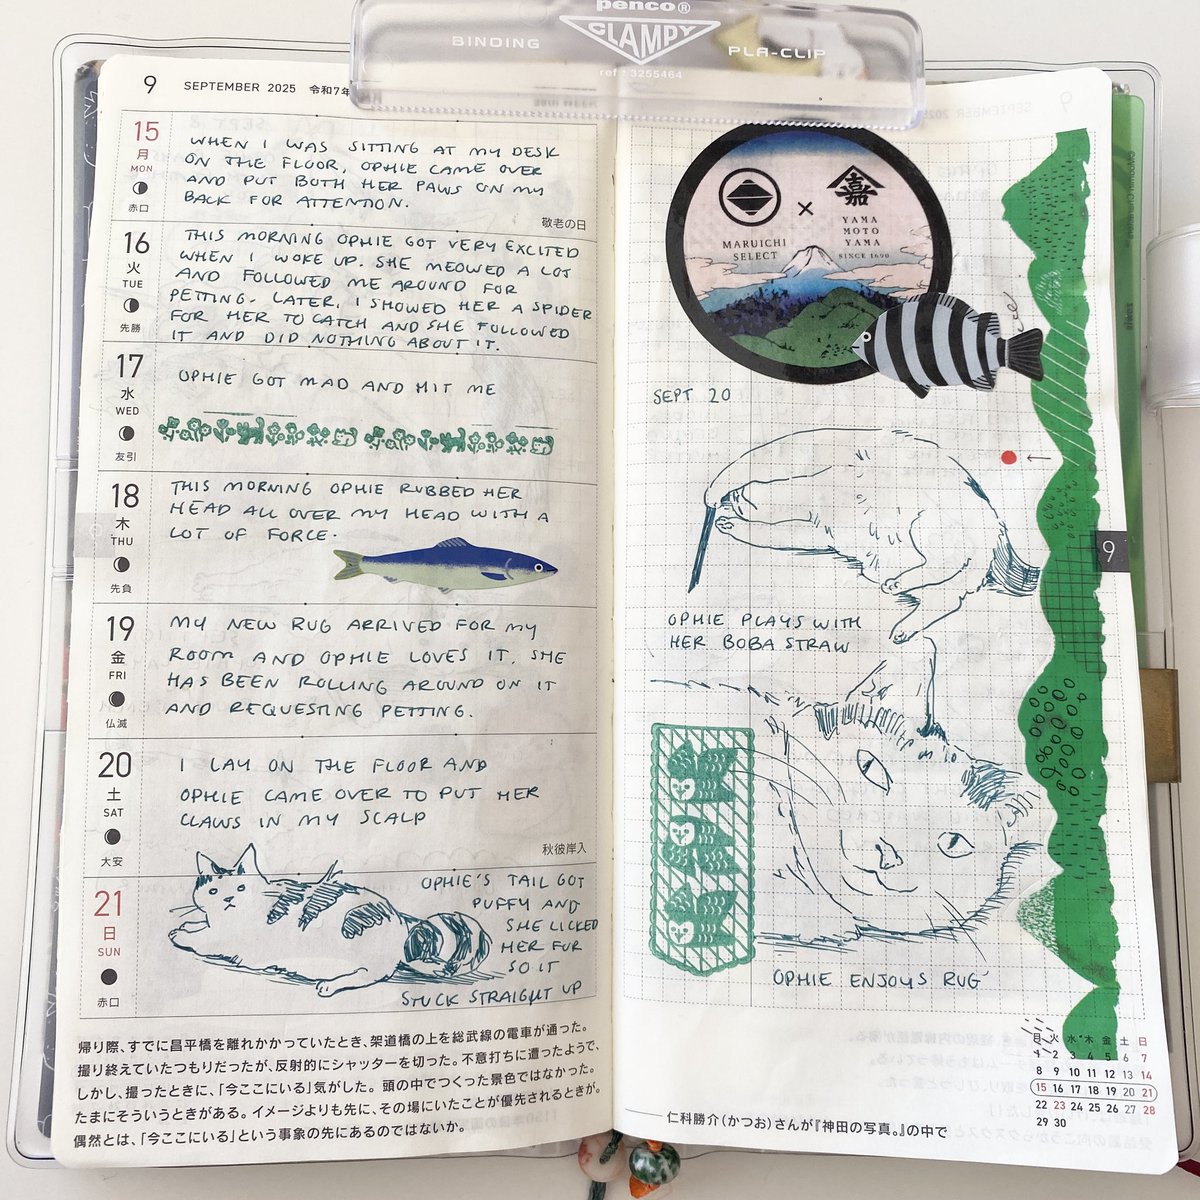 penco®
BINDING CLAMPY PLA-CLIP
ref : 3255464
9 SEPTEMBER 2025 令和7年
15
月
MON
赤口
WHEN I WAS SITTING AT MY DESK
ON THE FLOOR, OPHIE CAME OVER
AND PUT BOTH HER PAWS ON MY
BACK FOR ATTENTION.
敬老の日
16
火
TUE
先勝
THIS MORNING OPHIE GOT VERY EXCITED
WHEN I WOKE UP. SHE MEOWED A LOT
AND FOLLOWED ME AROUND FOR
PETTING. LATER, I SHOWED HER A SPIDER
FOR HER TO CATCH AND SHE FOLLOWED
IT AND DID NOTHING ABOUT IT.
17
水
WED
友引
OPHIE GOT MAD AND HIT ME
18
木
THU
先負
THIS MORNING OPHIE RUBBED HER
HEAD ALL OVER MY HEAD WITH A
LOT OF FORCE.
19
金
FRI
仏滅
MY NEW RUG ARRIVED FOR MY
ROOM AND OPHIE LOVES IT. SHE
HAS BEEN ROLLING AROUND ON IT
AND REQUESTING PETTING.
20
土
SAT
大安
I LAY ON THE FLOOR AND
OPHIE CAME OVER TO PUT HER
CLAWS IN MY SCALP
秋彼岸入
21
日
SUN
赤口
OPHIE'S TAIL GOT
PUFFY AND
SHE LICKED
HER FUR
SO IT
STUCK STRAIGHT UP
帰り際、すでに昌平橋を離れかかっていたとき、架道橋の上を総武線の電車が通った。
撮り終えていたつもりだったが、反射的にシャッターを切った。不意打ちに遭ったようで、
しかし、撮ったときに、「今ここにいる」気がした。頭の中でつくった景色ではなかった。
たまにそういうときがある。イメージよりも先に、その場にいたことが優先されるときが。
偶然とは、「今ここにいる」という事象の先にあるのではないか。
MARUICHI
SELECT
×
嘉
YAMA
MOTO
YAMA
SINCE 1690
SEPT 20
OPHIE PLAYS WITH
HER BOBA STRAW
9
OPHIE ENJOYS RUG
月 火 水 木 金 土 日
1 2 3 4 5 6 7
8 9 10 11 12 13 14
15 16 17 18 19 20 21
22 23 24 25 26 27 28
29 30
仁科勝介(かつお)さんが『神田の写真。』の中で